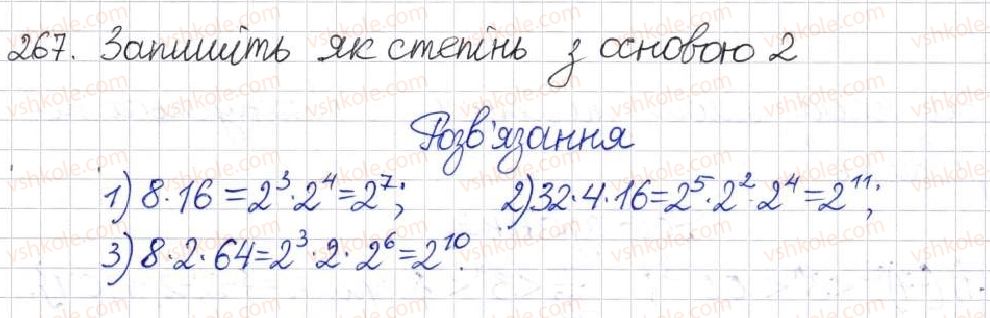 267. Запишіть як степінь з основою 2
Розв'язання
1) 8·16=2³·2⁴=2⁷; 2) 32·4·16=2⁵·2²·2⁴=2¹¹;
3) 8·2·64=2³·2·2⁶=2¹⁰.